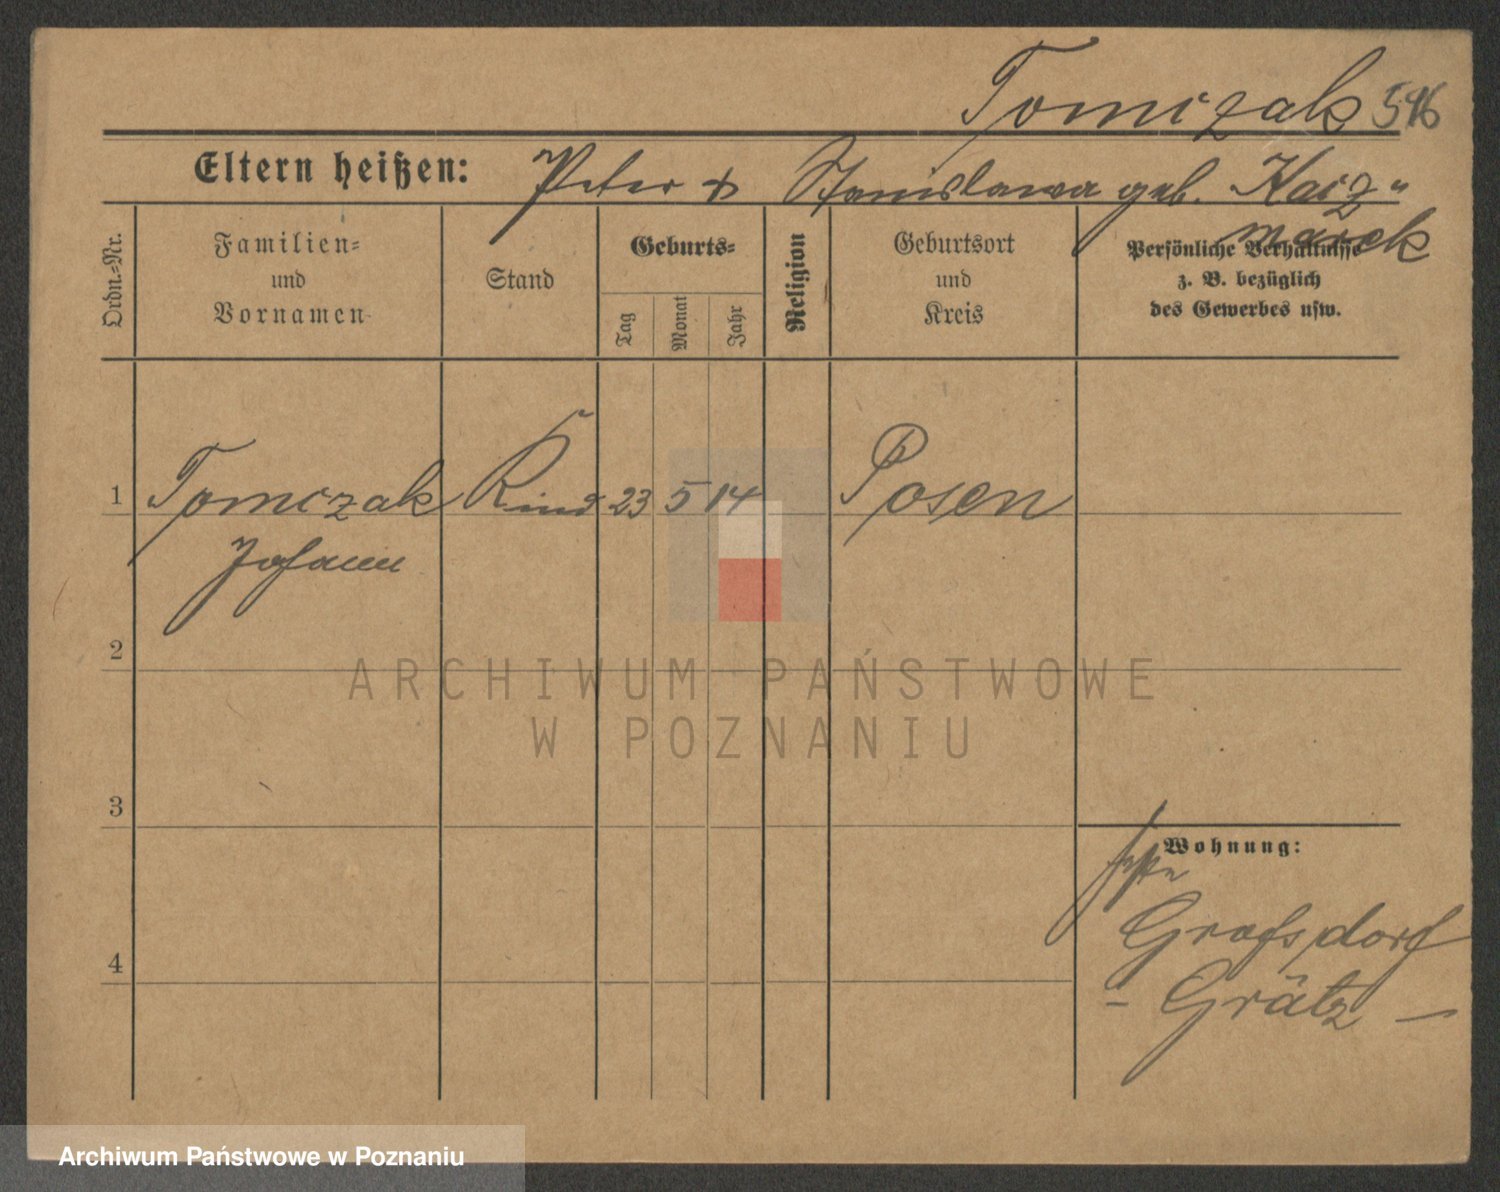 Tomczak 546
Eltern heißen: Peter & Stanislawa geb. Kacz-
marek
Ordn.-Nr.
Familien-
und
Vornamen
Stand
Geburts-
Tag
Monat
Jahr
Religion
Geburtsort
und
Kreis
Persönliche Verhältnisse
z. B. bezüglich
des Gewerbes usw.
1 Tomczak Kind 23 5 14 Posen
Johann
2
ARCHIWUM PAŃSTWOWE
W POZNANIU
3
Wohnung:
4
Grafsdorf
- Grätz -
Archiwum Państwowe w Poznaniu